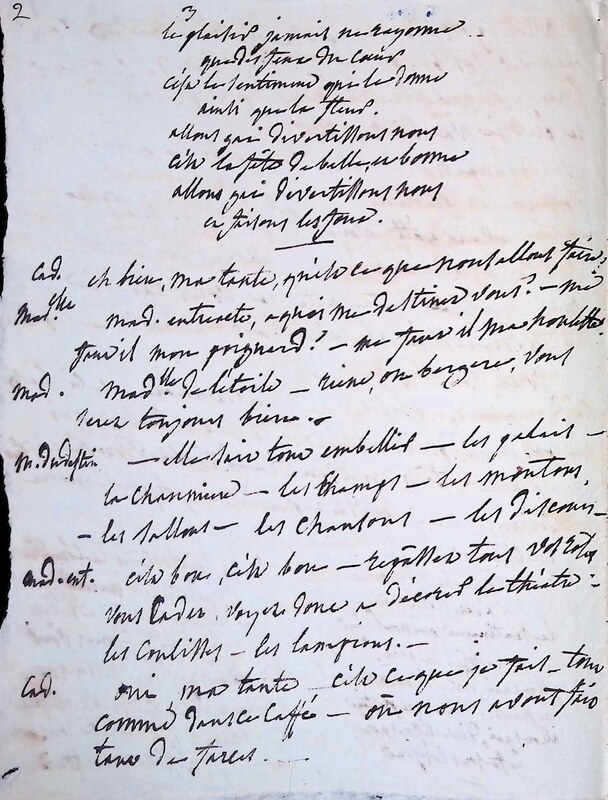 2 3
le plaisir jamais ne rayonne
que des feux du cœur
c'est le sentiment qui le donne
ainsi que la fleur.
allons gai divertissons nous
c'est la fête de belle et bonne
allons gai divertissons nous
en faisons les foux.
Cad. eh bien, ma tante, qu'est ce que nous allons faire,
Mad.elle mad. entracte, a quoi me destinez vous? — me
faut il mon poignard? — me faut il ma houlette
mad. Mad.lle de l'étoile — reine, ou bergere, vous
serez toujours bien. —
M. Dudestin — elle sait tout embellir — les palais —
la chaumiere — les champs — les moutons,
— les sallons — les chansons — les discours —
mad. ent. c'est bon, c'est bon — repassez tous vos rôles
vous Cadet, voyez donc a décorer le théatre —
les coulisses — les lampions. —
Cad. oui, ma tante c'est ce que je fais — tout
comme dans ce caffé — où nous avons fait
tant de farces. —